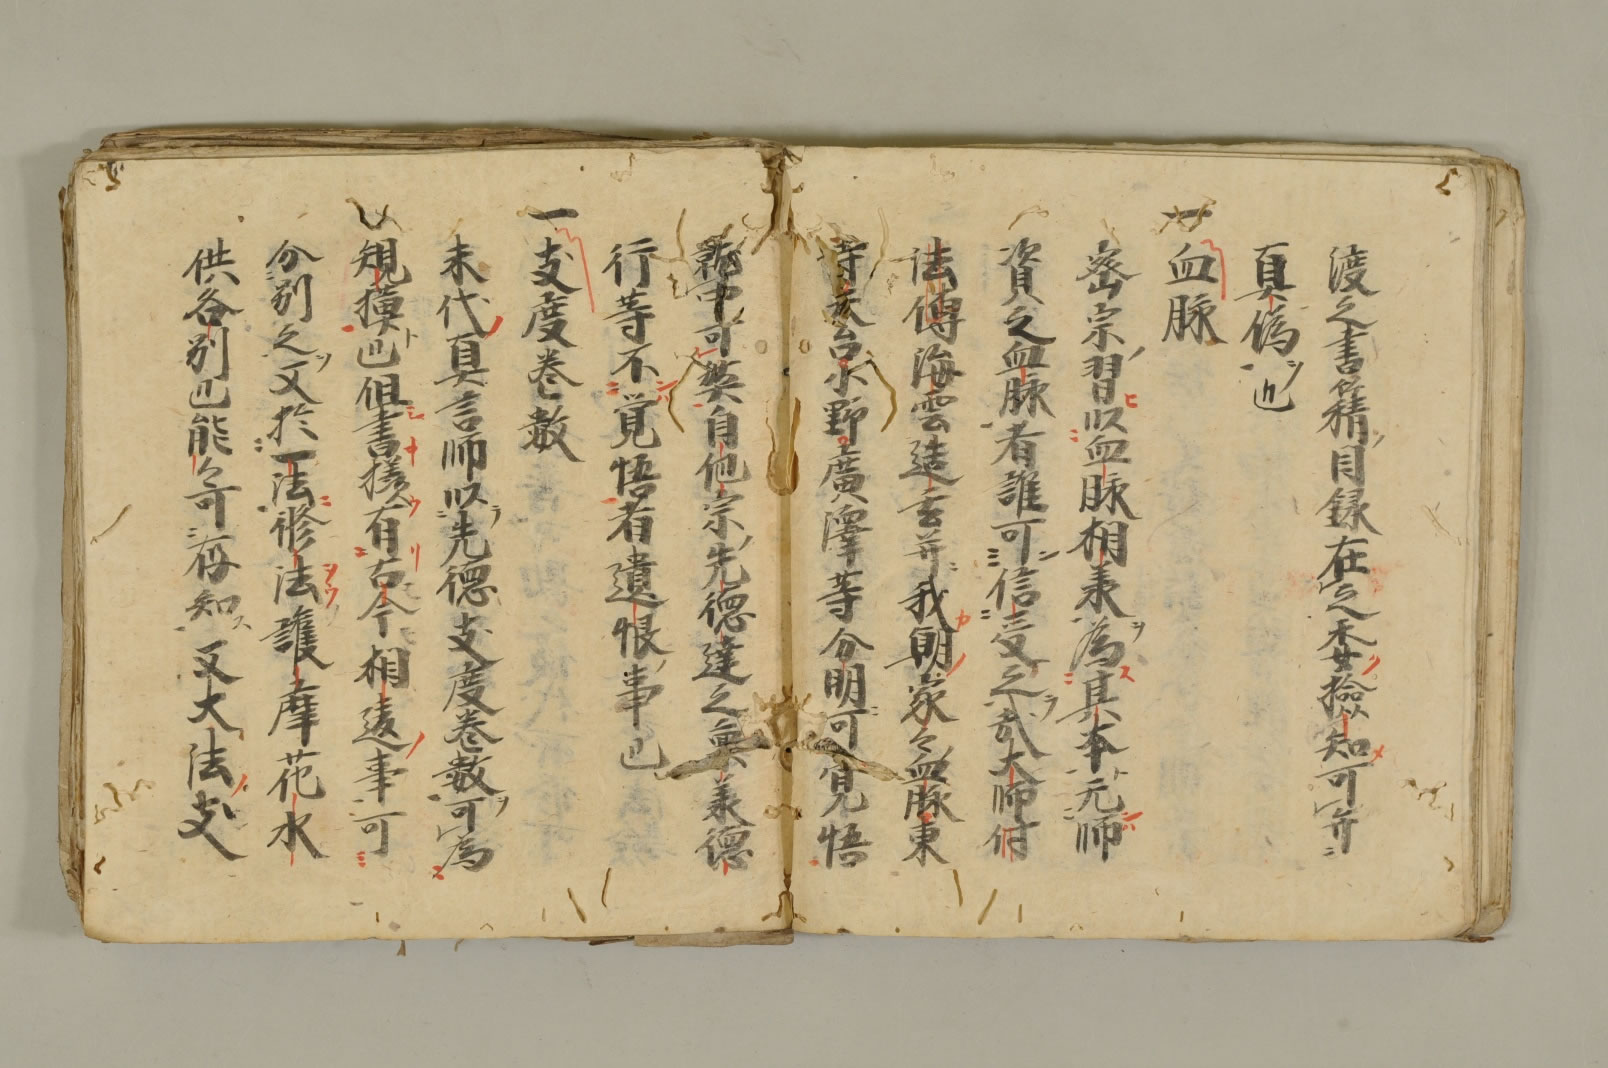 渡之書籍目録在之悉検知可弁
真偽也
一血脉
密宗習以血脉相承為其本元師
資之血脉者誰可信受之哉大師付
法傳海雲造玄并我朝家々血脉東
寺天台小野廣澤等分明可覚悟
就中可英自他宗先德達之
行等不覚悟者遺恨事也
一支度巻数
末代真言師以先德支度巻数可為
規摸也但書様有古今相違事可
分別之又於一法修法護摩花水
供各別也能々可存知又大法支